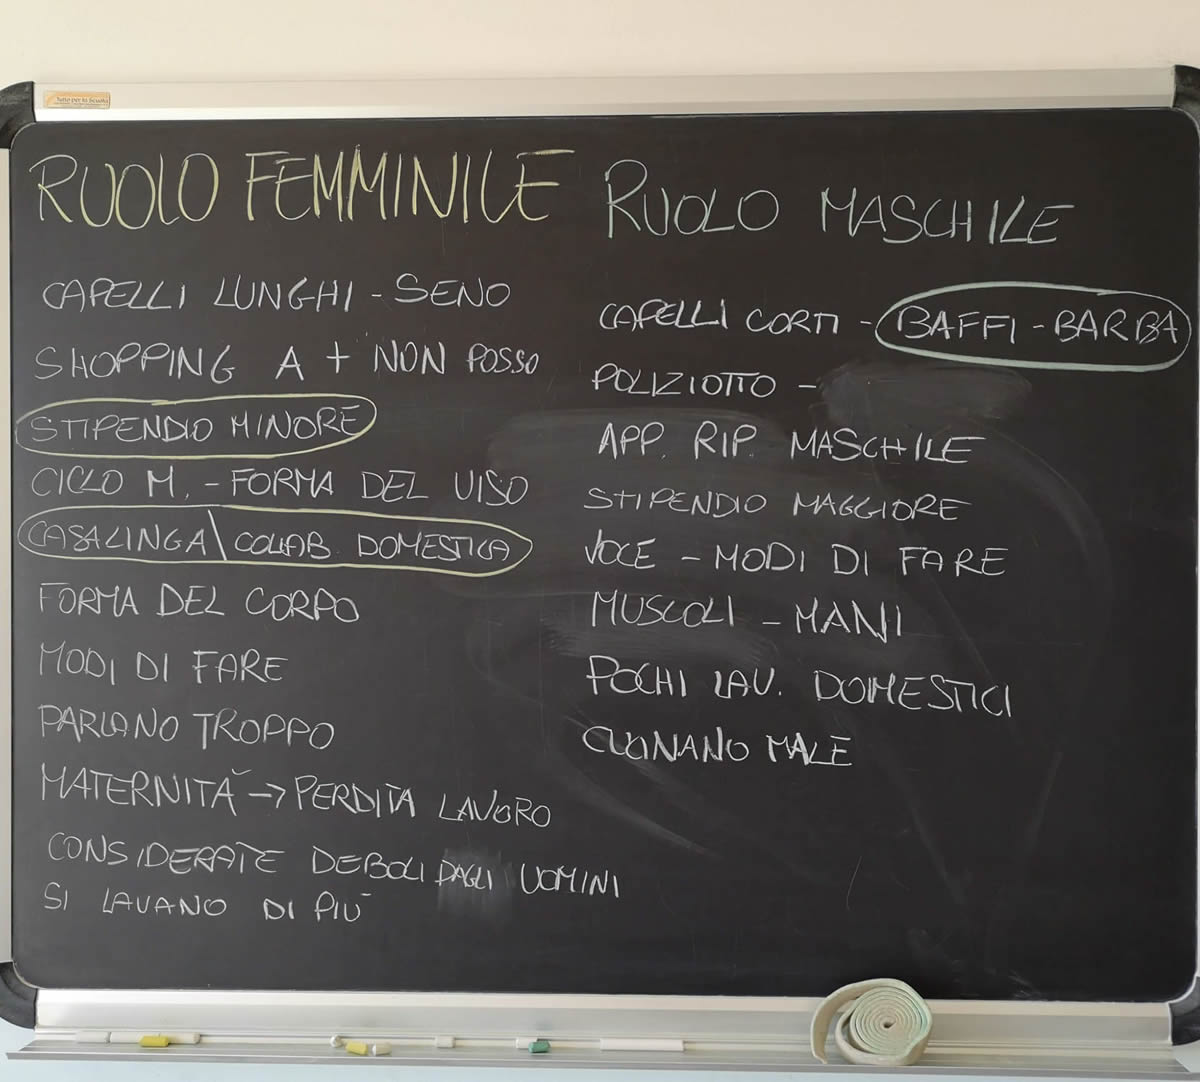 Tutto per la Scuola
RUOLO FEMMINILE
CAPELLI LUNGHI - SENO
SHOPPING A + NON POSSO
STIPENDIO MINORE
CICLO M. - FORMA DEL VISO
CASALINGA \ COLLAB. DOMESTICA
FORMA DEL CORPO
MODI DI FARE
PARLANO TROPPO
MATERNITÀ → PERDITA LAVORO
CONSIDERATE DEBOLI DAGLI UOMINI
SI LAVANO DI PIÙ
RUOLO MASCHILE
CAPELLI CORTI - BAFFI - BARBA
POLIZIOTTO -
APP. RIP. MASCHILE
STIPENDIO MAGGIORE
VOCE - MODI DI FARE
MUSCOLI - MANI
POCHI LAV. DOMESTICI
CUCINANO MALE